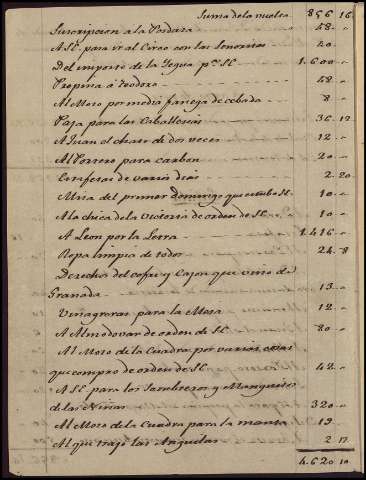 Suma de la vuelta 856 16
Suscripcion a la Posdata 48 "
A SE. para ir al Corso con las Señoritas 20 "
Del importe de la Yegua pr. SE 1.600 "
Propina á Teodoro 48 "
Al Moso por media fanega de cebada 8 "
Paja para las Caballerias 36 12
A Juan el de dos veces 12 "
Al Porrero para carbon 20 "
de varios dias 2 20
Misa del primer domingo que estubo SE. 10 "
A la chica de la Victoria de orden de SE 10 "
A Leon por la Letra 1.416 "
Ropa limpia de todos 24 8
Derechos del cofre y Cajon que vino de
Granada 13 "
Vinagreras para la Mesa 12 "
A Almodovar de orden de SE 80 "
Al Moso de la Cuadra por varias cosas
que compro de orden de SE 42 "
A SE para los Sombreros y Manguitos
de las Niñas 320 "
Al Moso de la Cuadra para la manta 19 "
Al que trajo las Anguilas 2 17
4.620 10